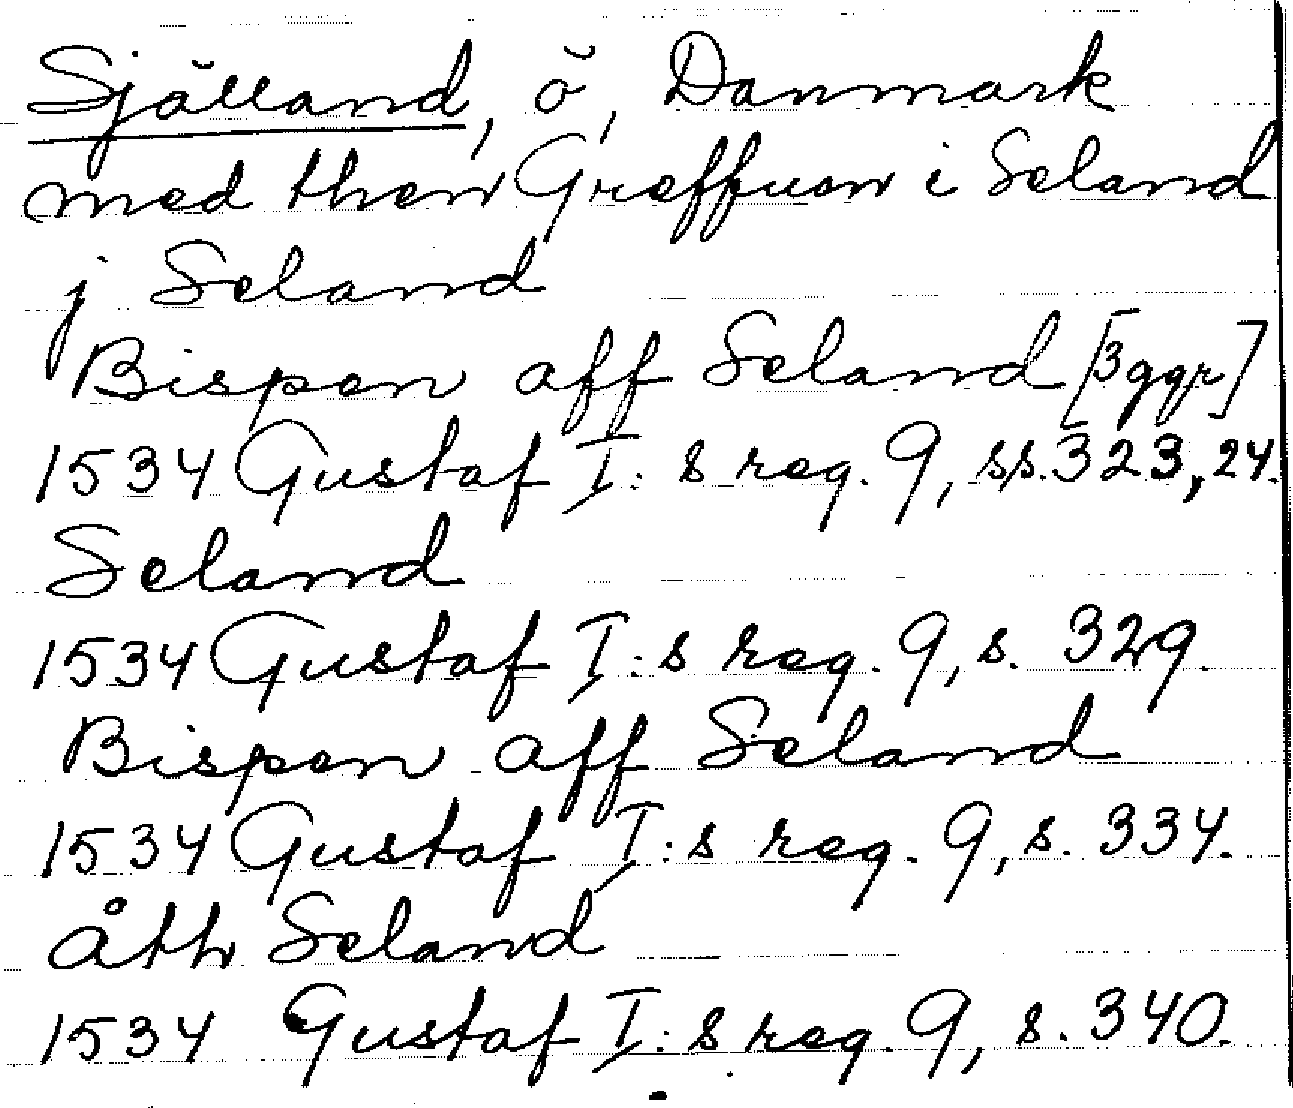 Själland, ö, Danmark
med then Greffuen i Seland
j Seland
Bispen aff Seland [3ggr]
1534 Gustaf I:s reg. 9, ss. 323, 24.
Seland
1534 Gustaf I:s reg. 9, s. 329.
Bispen aff Seland
1534 Gustaf I:s reg. 9, s. 334.
åth Seland
1534 Gustaf I:s reg. 9, s. 340.